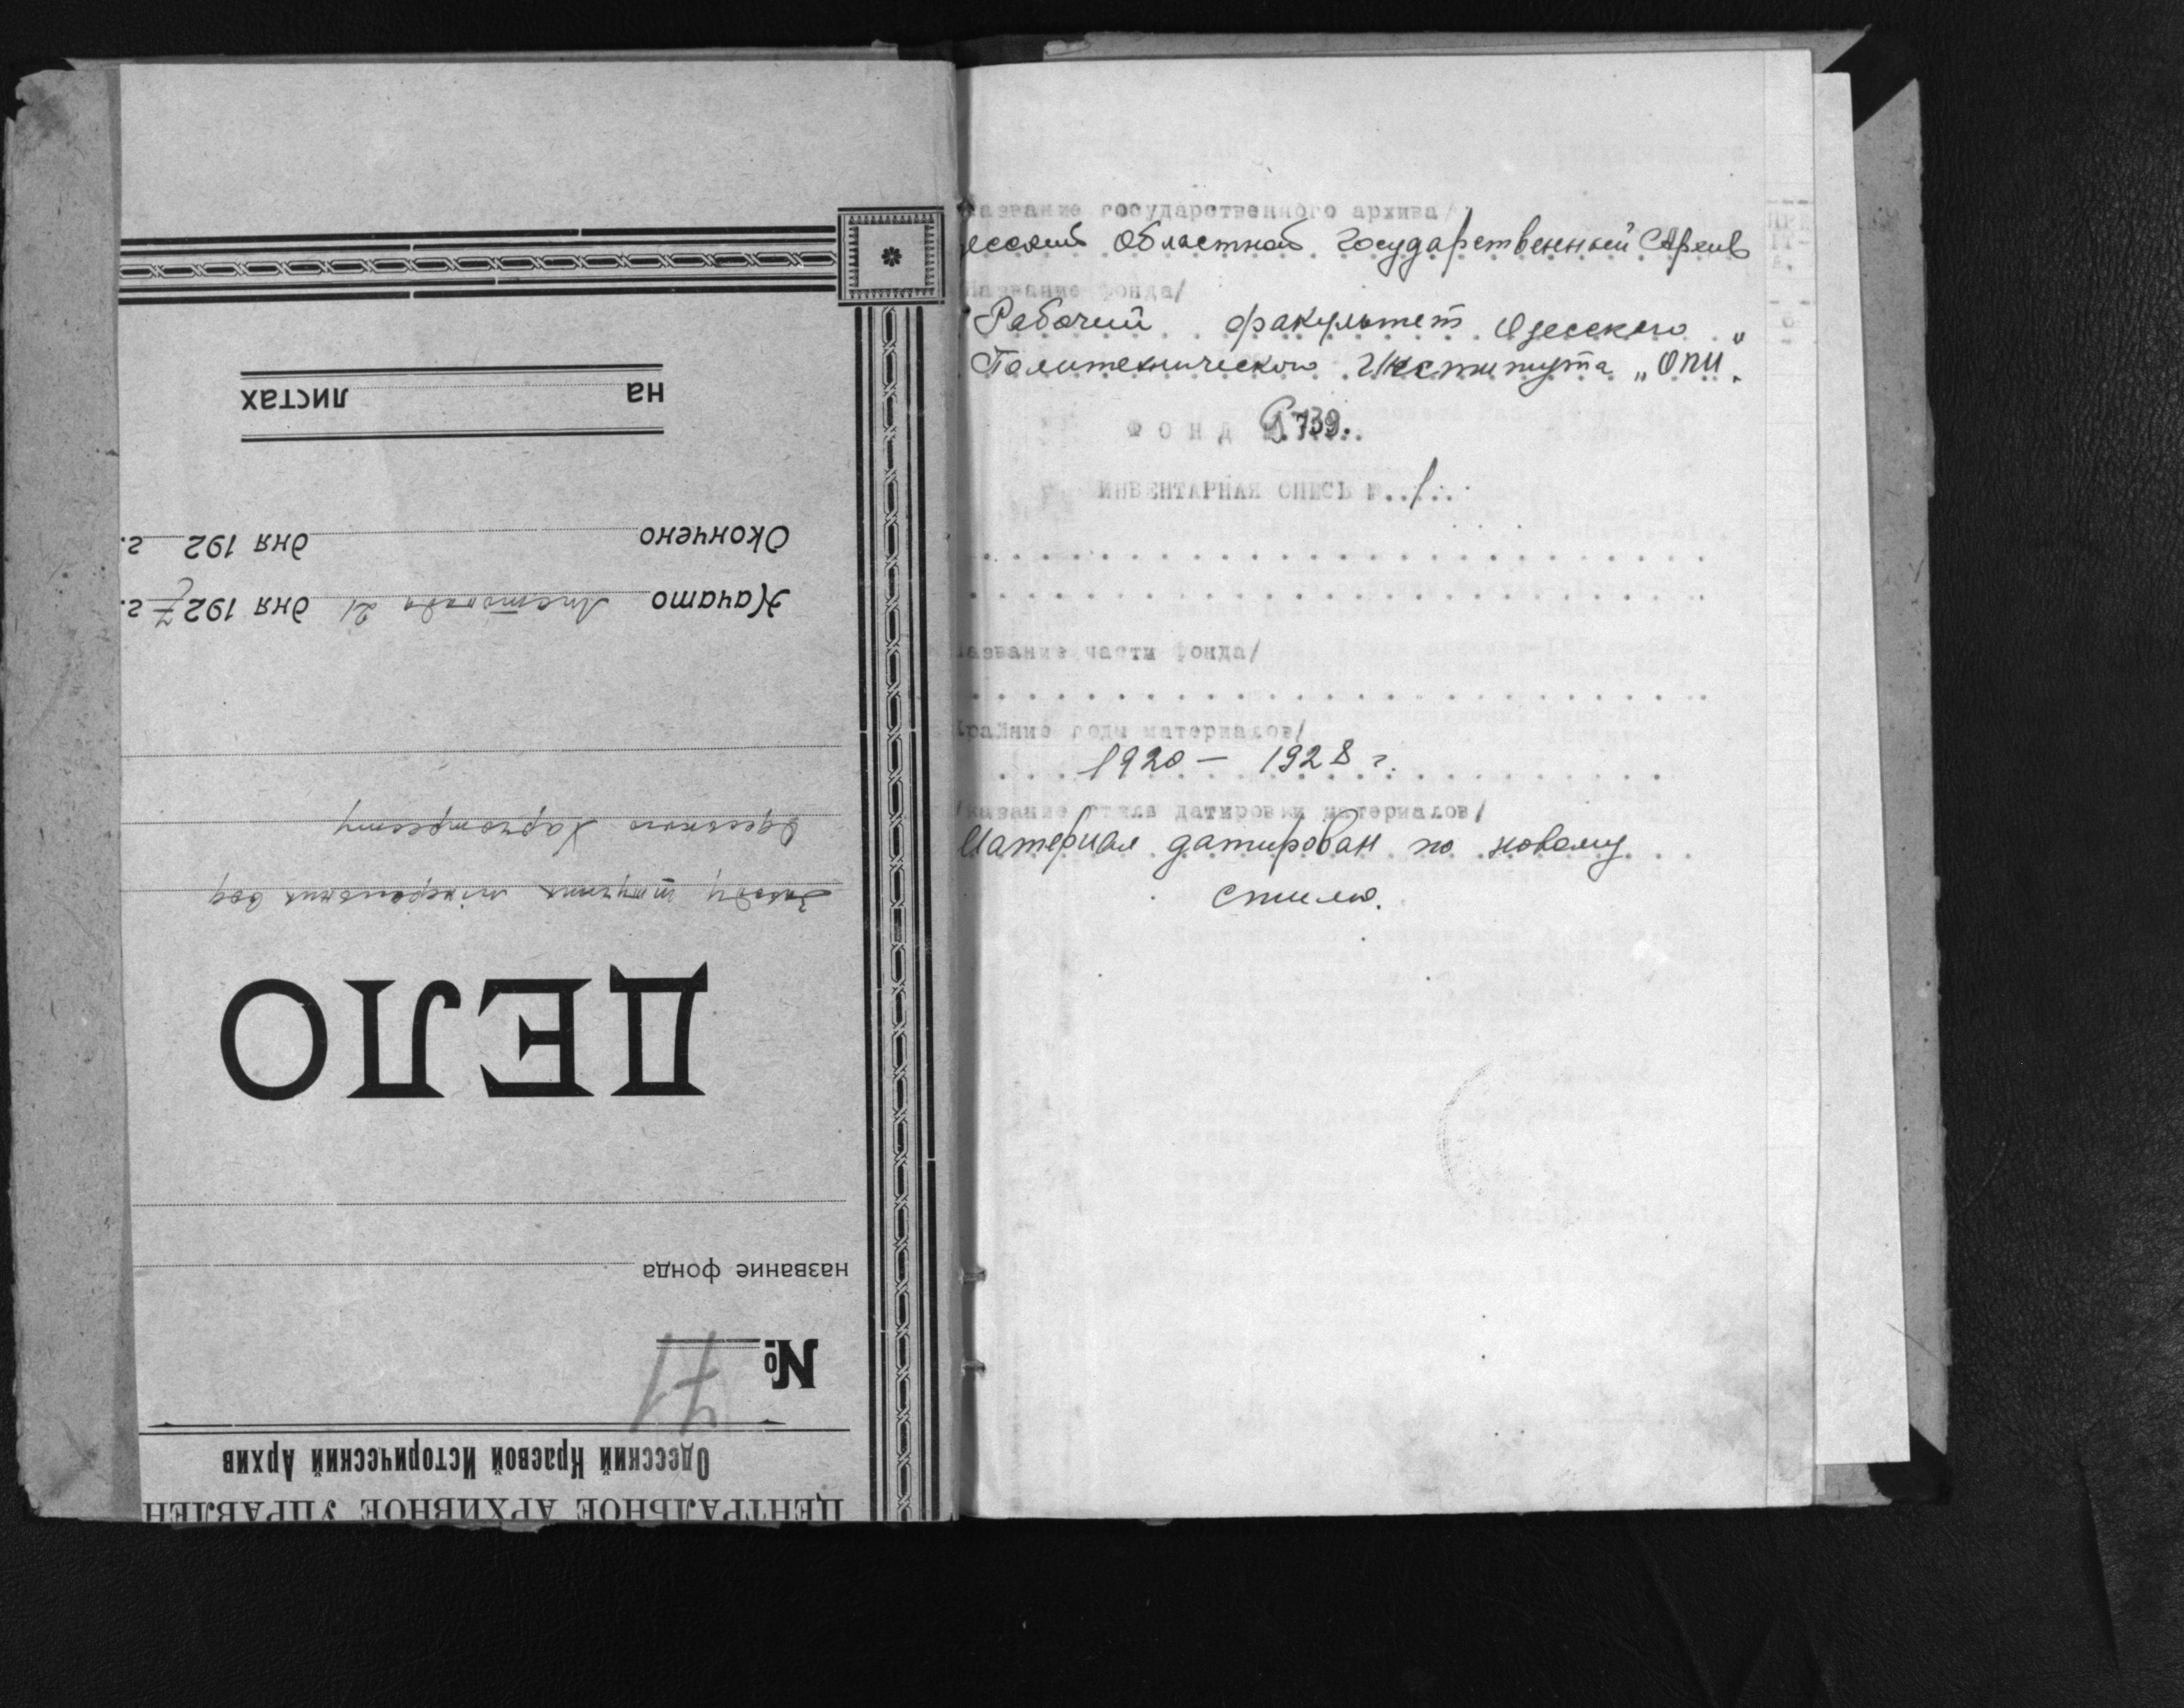 ЦЕНТРАЛЬНОЕ АРХИВНОЕ УПРАВЛЕН
Одесский Краевой Исторический Архив
№ 71
название фонда
ДЕЛО
Заводу штучних мінеральних вод
Одеського Харчотресту
Начато Листопада 21 дня 1927 г.
Окончено дня 192 г.
на листах
азвание государственного архива/
есский Областной Государственный Архив
Название фонда/
Рабочий факультет Одесского
Политехнического Института „ОПИ"
ФОНД Р. 739.
ИНВЕНТАРНАЯ ОПИСЬ № 1
азвание части фонда/
крайние годы материалов/
1920 — 1928 г.
/указание стиля датировки материалов/
Материал датирован по новому
стилю.